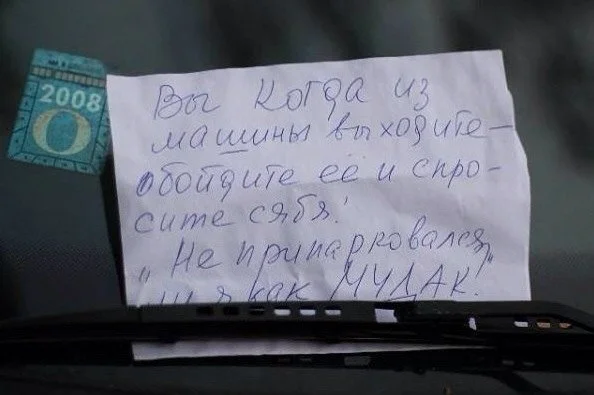 2008
О
Вы когда из
машины выходите—
обойдите её и спро-
сите сябя!
„Не припарковался
ли я как МУДАК!"